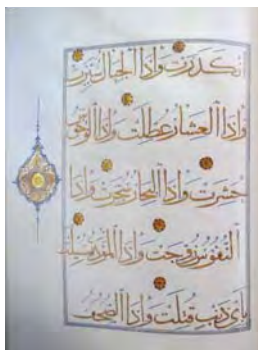 انكدرت واذا الجبال سيرت
واذا العشار عطلت واذا الوحوش
حشرت واذا البحار سجرت واذا
النفوس زوجت واذا الموءدة سئلت
باى ذنب قتلت واذا الصحف